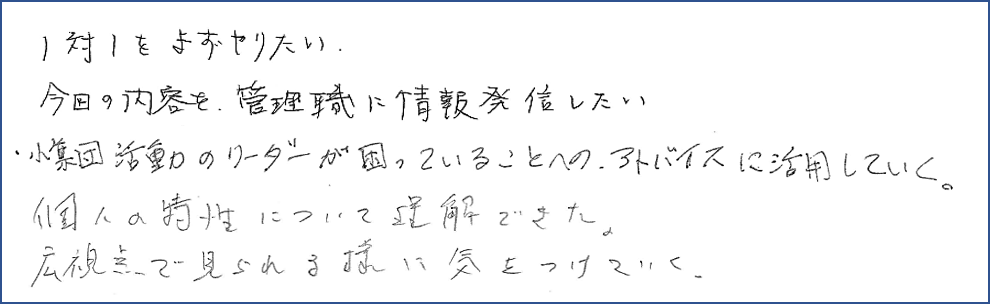 1対1をまずやりたい.
今日の内容を、管理職に情報発信したい
・小集団活動のリーダーが困っていることへの、アドバイスに活用していく。
個人の特性について理解できた。
広視点で見られる様に気をつけていく、